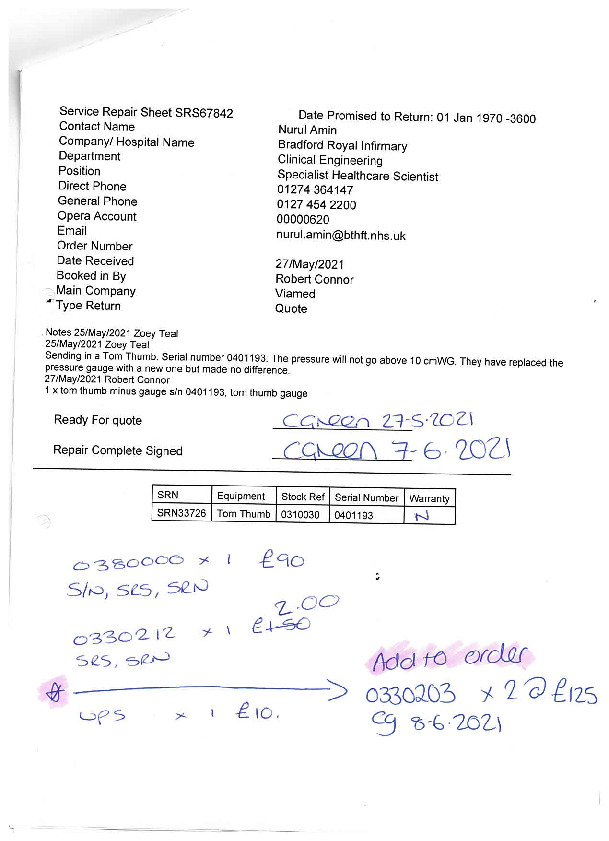 Service Repair Sheet SRS67842 Date Promised to Return: 01 Jan 1970 -3600
Contact Name Nurul Amin
Company/ Hospital Name Bradford Royal Infirmary
Department Clinical Engineering
Position Specialist Healthcare Scientist
Direct Phone 01274 364147
General Phone 0127 454 2200
Opera Account 00000620
Email nurul.amin@bthft.nhs.uk
Order Number
Date Received 27/May/2021
Booked in By Robert Connor
Main Company Viamed
Type Return Quote
Notes 25/May/2021 Zoey Teal
25/May/2021 Zoey Teal
Sending in a Tom Thumb. Serial number 0401193. The pressure will not go above 10 cmWG. They have replaced the
pressure gauge with a new one but made no difference.
27/May/2021 Robert Connor
1 x tom thumb minus gauge s/n 0401193, tom thumb gauge
Ready For quote CGreen 27-5-2021
Repair Complete Signed CGreen 7-6-2021
SRN Equipment Stock Ref Serial Number Warranty
SRN33726 Tom Thumb 0310030 0401193 N
0380000 x 1 £90
S/N, SRS, SRN
2.00
0330212 x 1 £1.50
SRS, SRN
Add to order
0330203 x 2 @ £125
UPS x 1 £10.
cg 8-6-2021